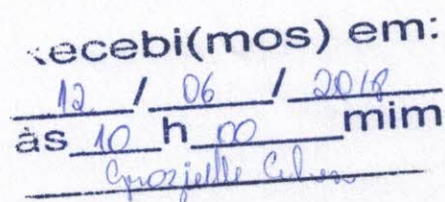 Recebi(mos) em:
12 / 06 / 2018
às 10 h 00 mim
Grazielle